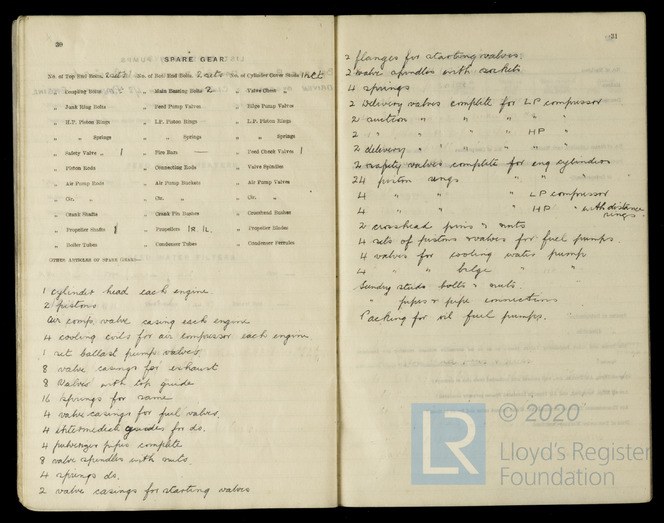 30
SPARE GEAR
No. of Top End Bolts, 2 sets No. of Bot. End Bolts, 2 sets No. of Cylinder Cover Studs
„ Coupling Bolts „ Main Bearing Bolts 2 „ Valve Chest „
„ Junk Ring Bolts „ Feed Pump Valves „ Bilge Pump Valves
„ H.P. Piston Rings „ I.P. Piston Rings „ L.P. Piston Rings
„ „ Springs „ „ Springs „ „ Springs
„ Safety Valve „ 1 „ Fire Bars — „ Feed Check Valves 1
„ Piston Rods „ Connecting Rods „ Valve Spindles
„ Air Pump Rods „ Air Pump Buckets „ Air Pump Valves
„ Cir. „ „ Cir. „ „ Cir. „
„ Crank Shafts „ Crank Pin Bushes „ Crosshead Bushes
„ Propeller Shafts 1 „ Propellers „ Propeller Blades
„ Boiler Tubes „ Condenser Tubes „ Condenser Ferrules
OTHER ARTICLES OF SPARE GEAR:—
1 cylinder head each engine.
2 pistons
air comp. valve casing each engine
4 cooling coils for air compressor each engine
1 set ballast pump valves.
8 valve casings for exhaust
8 Valves with top guide
16 springs for same
4 valve casings for fuel valves.
4 intermediate guides for do.
4 pulverizer pipes complete
8 valve spindles with nuts.
4 springs do.
2 valve casings for starting valves
31
2 flanges for starting valves.
2 valve spindles with sockets
4 springs
2 Delivery valves complete for LP compressor
2 suction „ „ „ „ „
2 „ „ „ „ HP „
2 delivery „ „ „ „ „
2 safety valves complete for eng cylinders
24 piston rings „ „ „
4 „ „ „ LP compressor
4 „ „ „ HP „ with distance rings
2 crosshead pins & nuts
4 sets of pistons & valves for fuel pumps.
4 valves for cooling water pump
4 „ „ bilge „ „
Sundry studs bolts & nuts.
„ pipes & pipe connections
Packing for oil fuel pumps.
LR © 2020
Lloyd's Register
Foundation